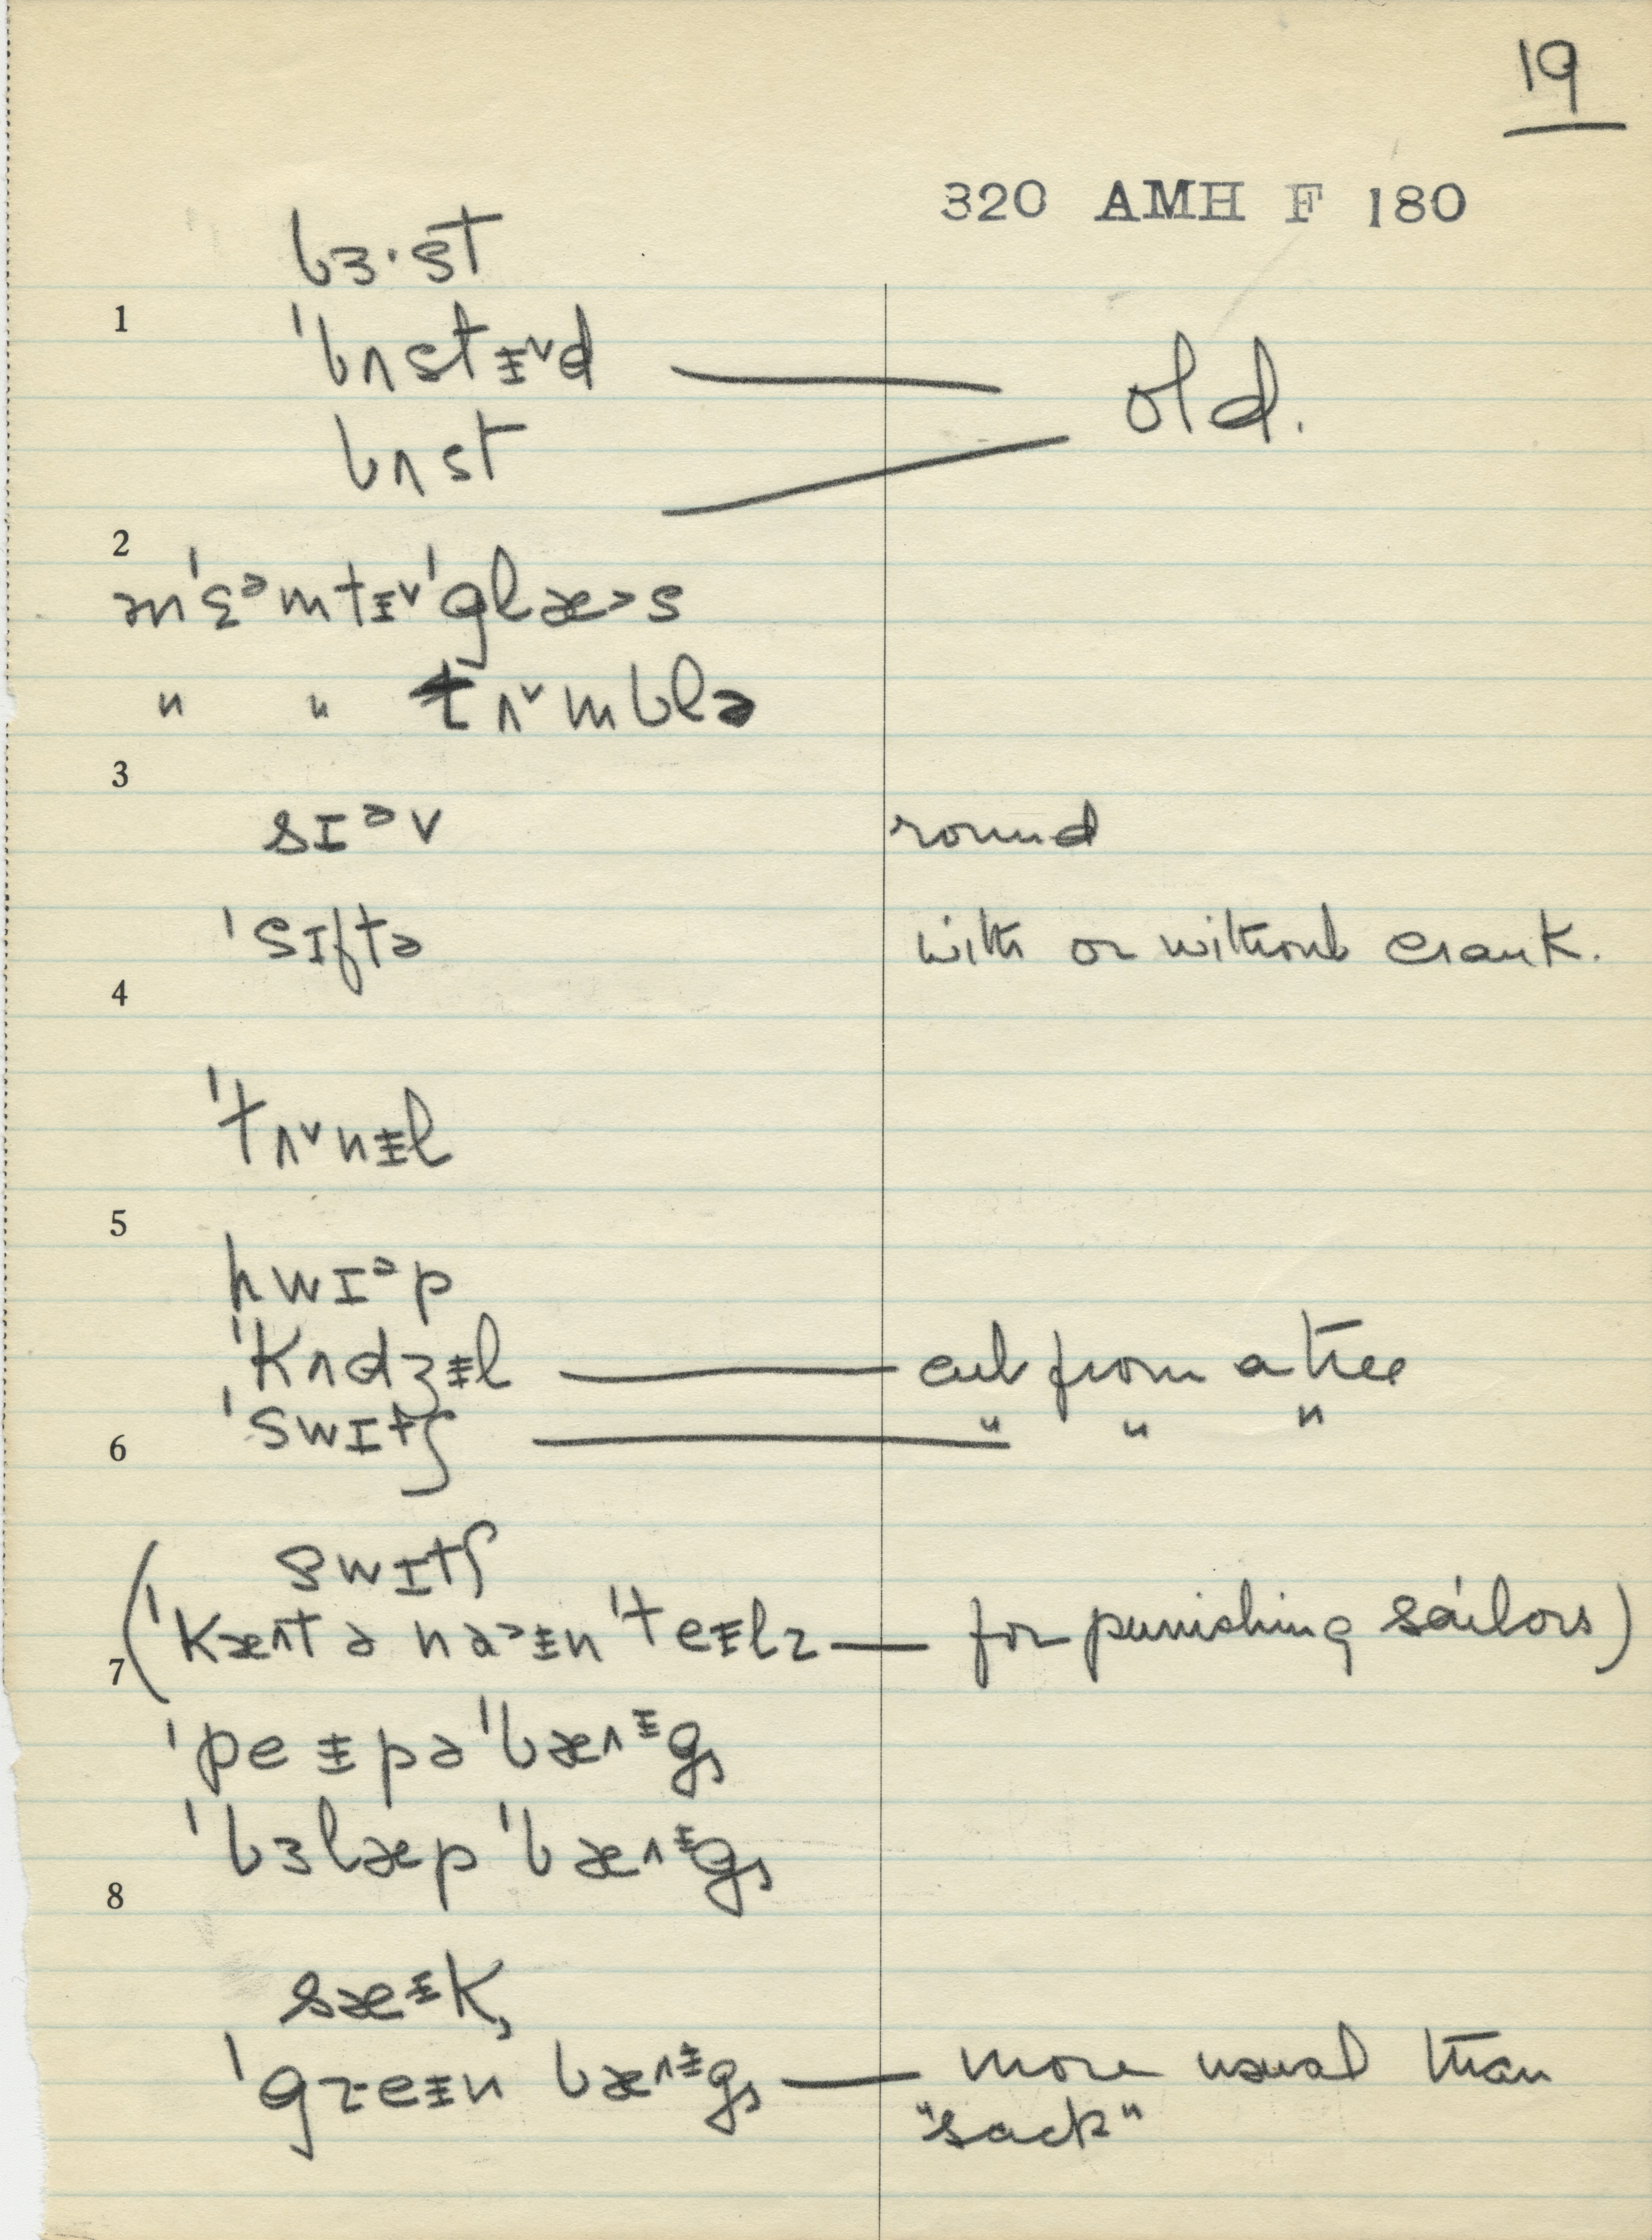 19
320 AMH F 180
bɜ·st
1
ˈbʌstᵻ˅d — old.
bʌst
2
ənˈɛᵊmtᵻ˅ˈglæ˃s
" " tʌ˅mblə
3
sɪᵊv round
ˈsɪftə with or without crank.
4
ˈtʌ˅nᵻl
5
hwɪᵊp
ˈkʌdʒᵻl — cut from a tree
6
ˈswɪtʃ — " " "
swɪtʃ
7
(ˈkæ˄t ə na˃ᵻnˈteᵻlz — for punishing sailors)
ˈpeᵻpəˈbæ˄ᵻgs
ˈbɜlæpˈbæ˄ᵻgs
8
sæᵻk,
ˈgreᵻn bæ˄ᵻgs — more usual than
"sack"